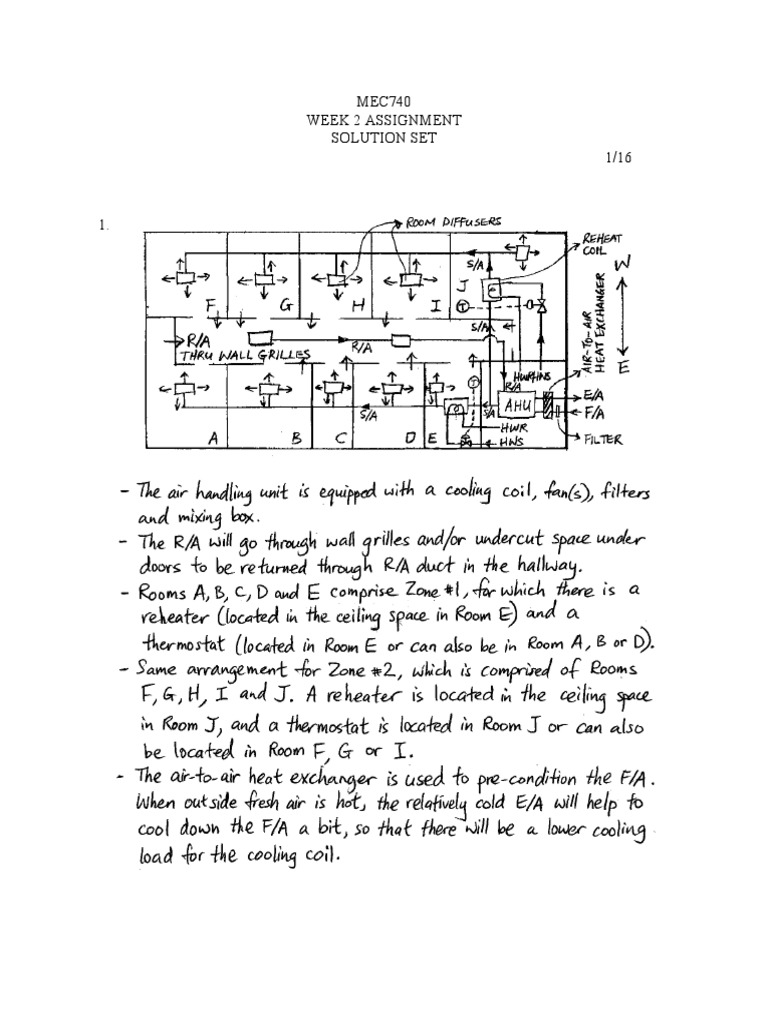 MEC740
WEEK 2 ASSIGNMENT
SOLUTION SET
1/16
1.
ROOM DIFFUSERS
REHEAT
COIL
W
S/A
J
F
G
H
I
T
AIR-TO-AIR
HEAT EXCHANGER
S/A
R/A
THRU WALL GRILLES
R/A
E
HWR
HWS
R/A
T
AHU
E/A
F/A
S/A
S/A
HWR
HWS
FILTER
A
B
C
D
E
- The air handling unit is equipped with a cooling coil, fan(s), filters
and mixing box.
- The R/A will go through wall grilles and/or undercut space under
doors to be returned through R/A duct in the hallway.
- Rooms A, B, C, D and E comprise Zone #1, for which there is a
reheater (located in the ceiling space in Room E) and a
thermostat (located in Room E or can also be in Room A, B or D).
- Same arrangement for Zone #2, which is comprised of Rooms
F, G, H, I and J. A reheater is located in the ceiling space
in Room J, and a thermostat is located in Room J or can also
be located in Room F, G or I.
- The air-to-air heat exchanger is used to pre-condition the F/A.
When outside fresh air is hot, the relatively cold E/A will help to
cool down the F/A a bit, so that there will be a lower cooling
load for the cooling coil.